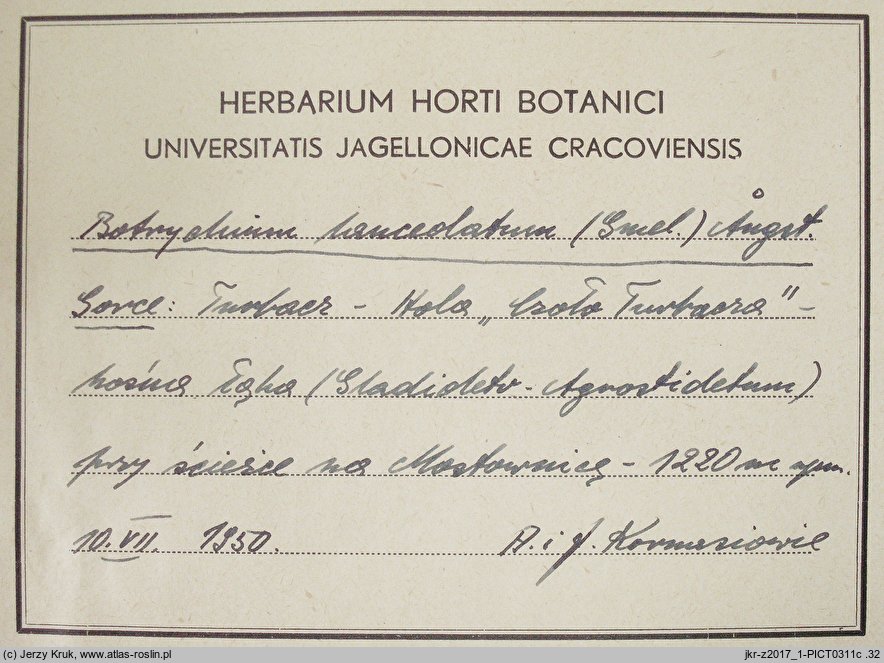 HERBARIUM HORTI BOTANICI
UNIVERSITATIS JAGELLONICAE CRACOVIENSIS
Botrychium lanceolatum (Gmel.) Ångst.
Gorce: Turbacz - Hala „Czoło Turbacza" -
kośna łąka (Gladioleto - Agrostidetum)
przy ścieżce na Mostownicę - 1220 m npm.
10.VII. 1950. A. i J. Kornasiowie
(c) Jerzy Kruk, www.atlas-roslin.pl jkr-z2017_1-PICT0311c .32